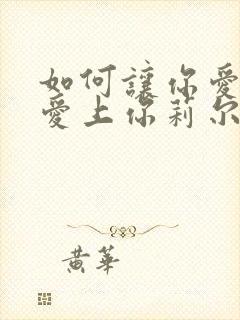 如何讓你愛
愛上你莉尔
黃華